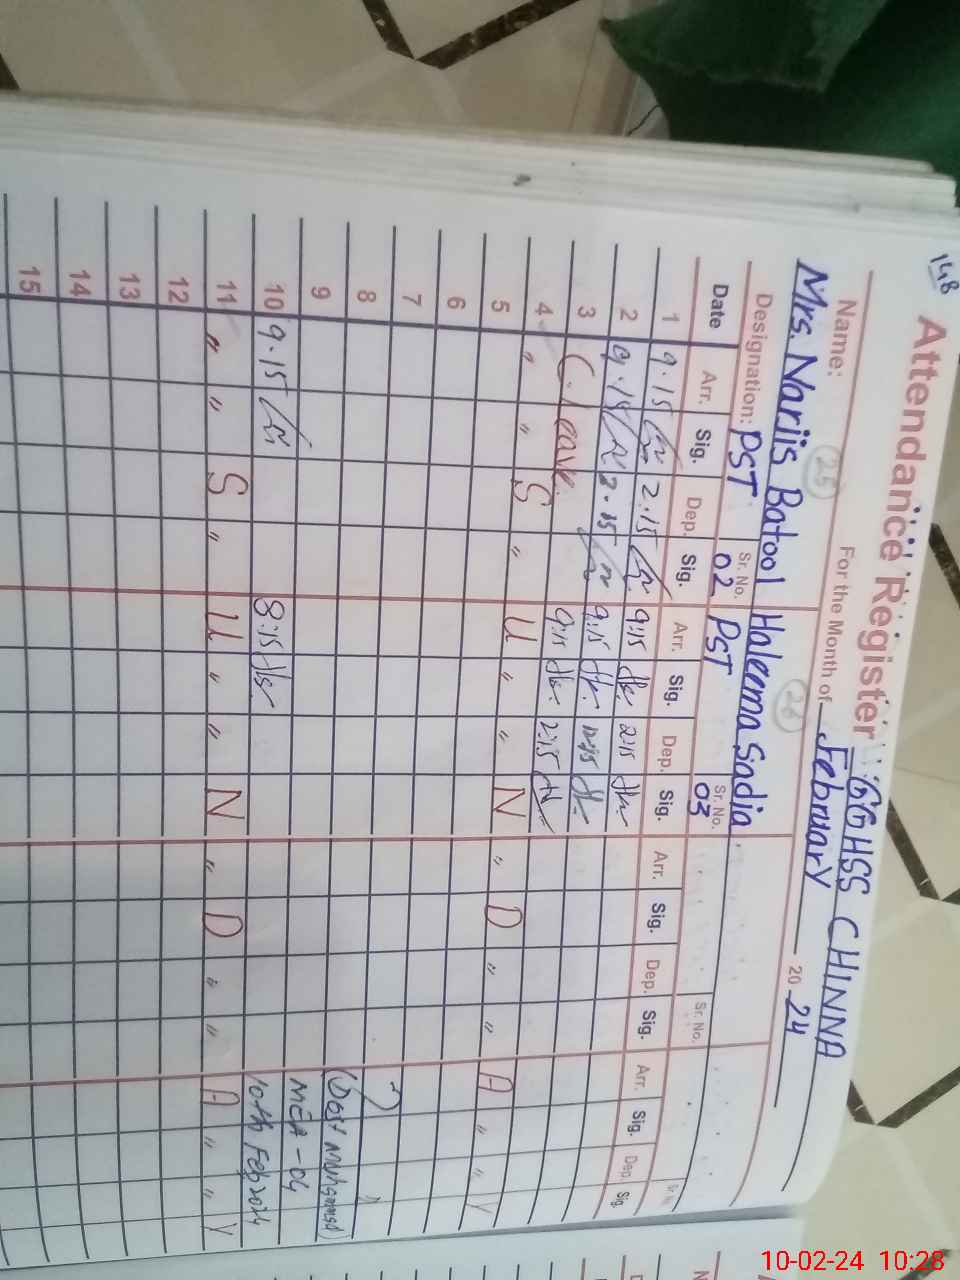 148
Attendance Register GGHSS CHINNA
For the Month of February 20 24
Name: 25 26
Mrs. Narjis Batool Haleema Sadia
Designation: PST Sr. No. 02 PST Sr. No. 03 Sr. No.
Date Arr. Sig. Dep. Sig. Arr. Sig. Dep. Sig. Arr. Sig. Dep. Sig. Arr. Sig. Dep. Sig.
1 9.15 2.15 9:15 2:15
2 9.15 2.15 9:15 12:15
3 C. leave 9:15 2:15
4 " " S " U " " N " D " " A " " Y
5
6
7
8
9 (Dost Muhammad)
10 9.15 8:15 MEA-04
10th Feb 2024
11 " " S " U " " N " D " " A " " Y
12
13
14
15
10-02-24 10:28